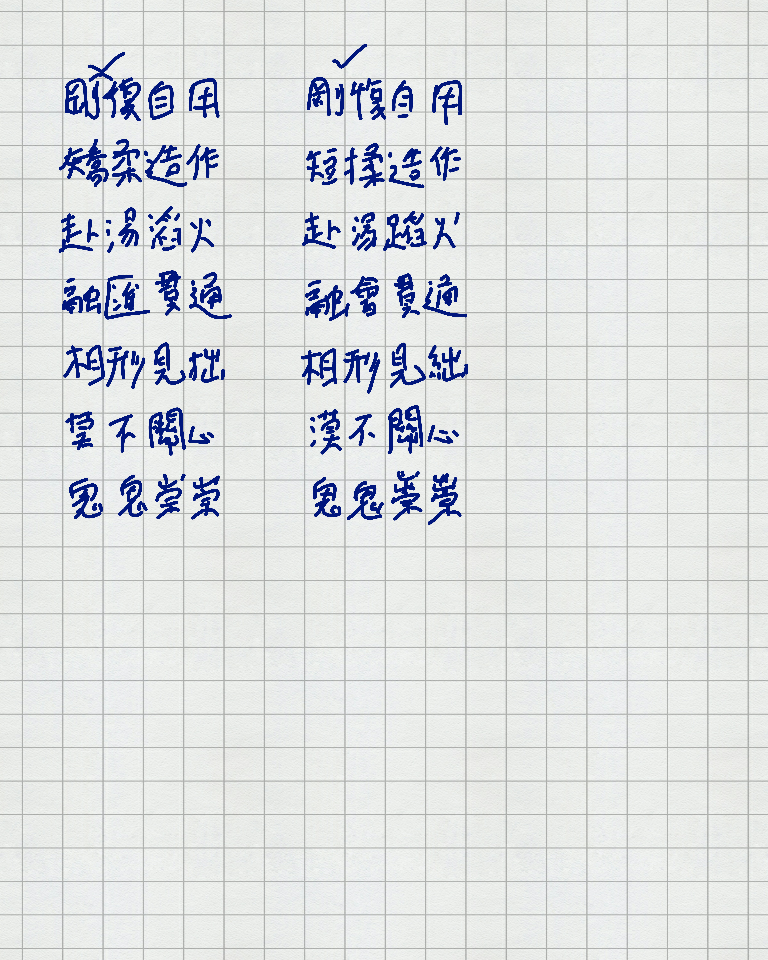 剛復自用 剛愎自用
矯柔造作 短揉造作
赴湯滔火 赴湯蹈火
融匯貫通 融會貫通
相形見拙 相形見絀
莫不關心 漠不關心
鬼鬼崇崇 鬼鬼祟祟